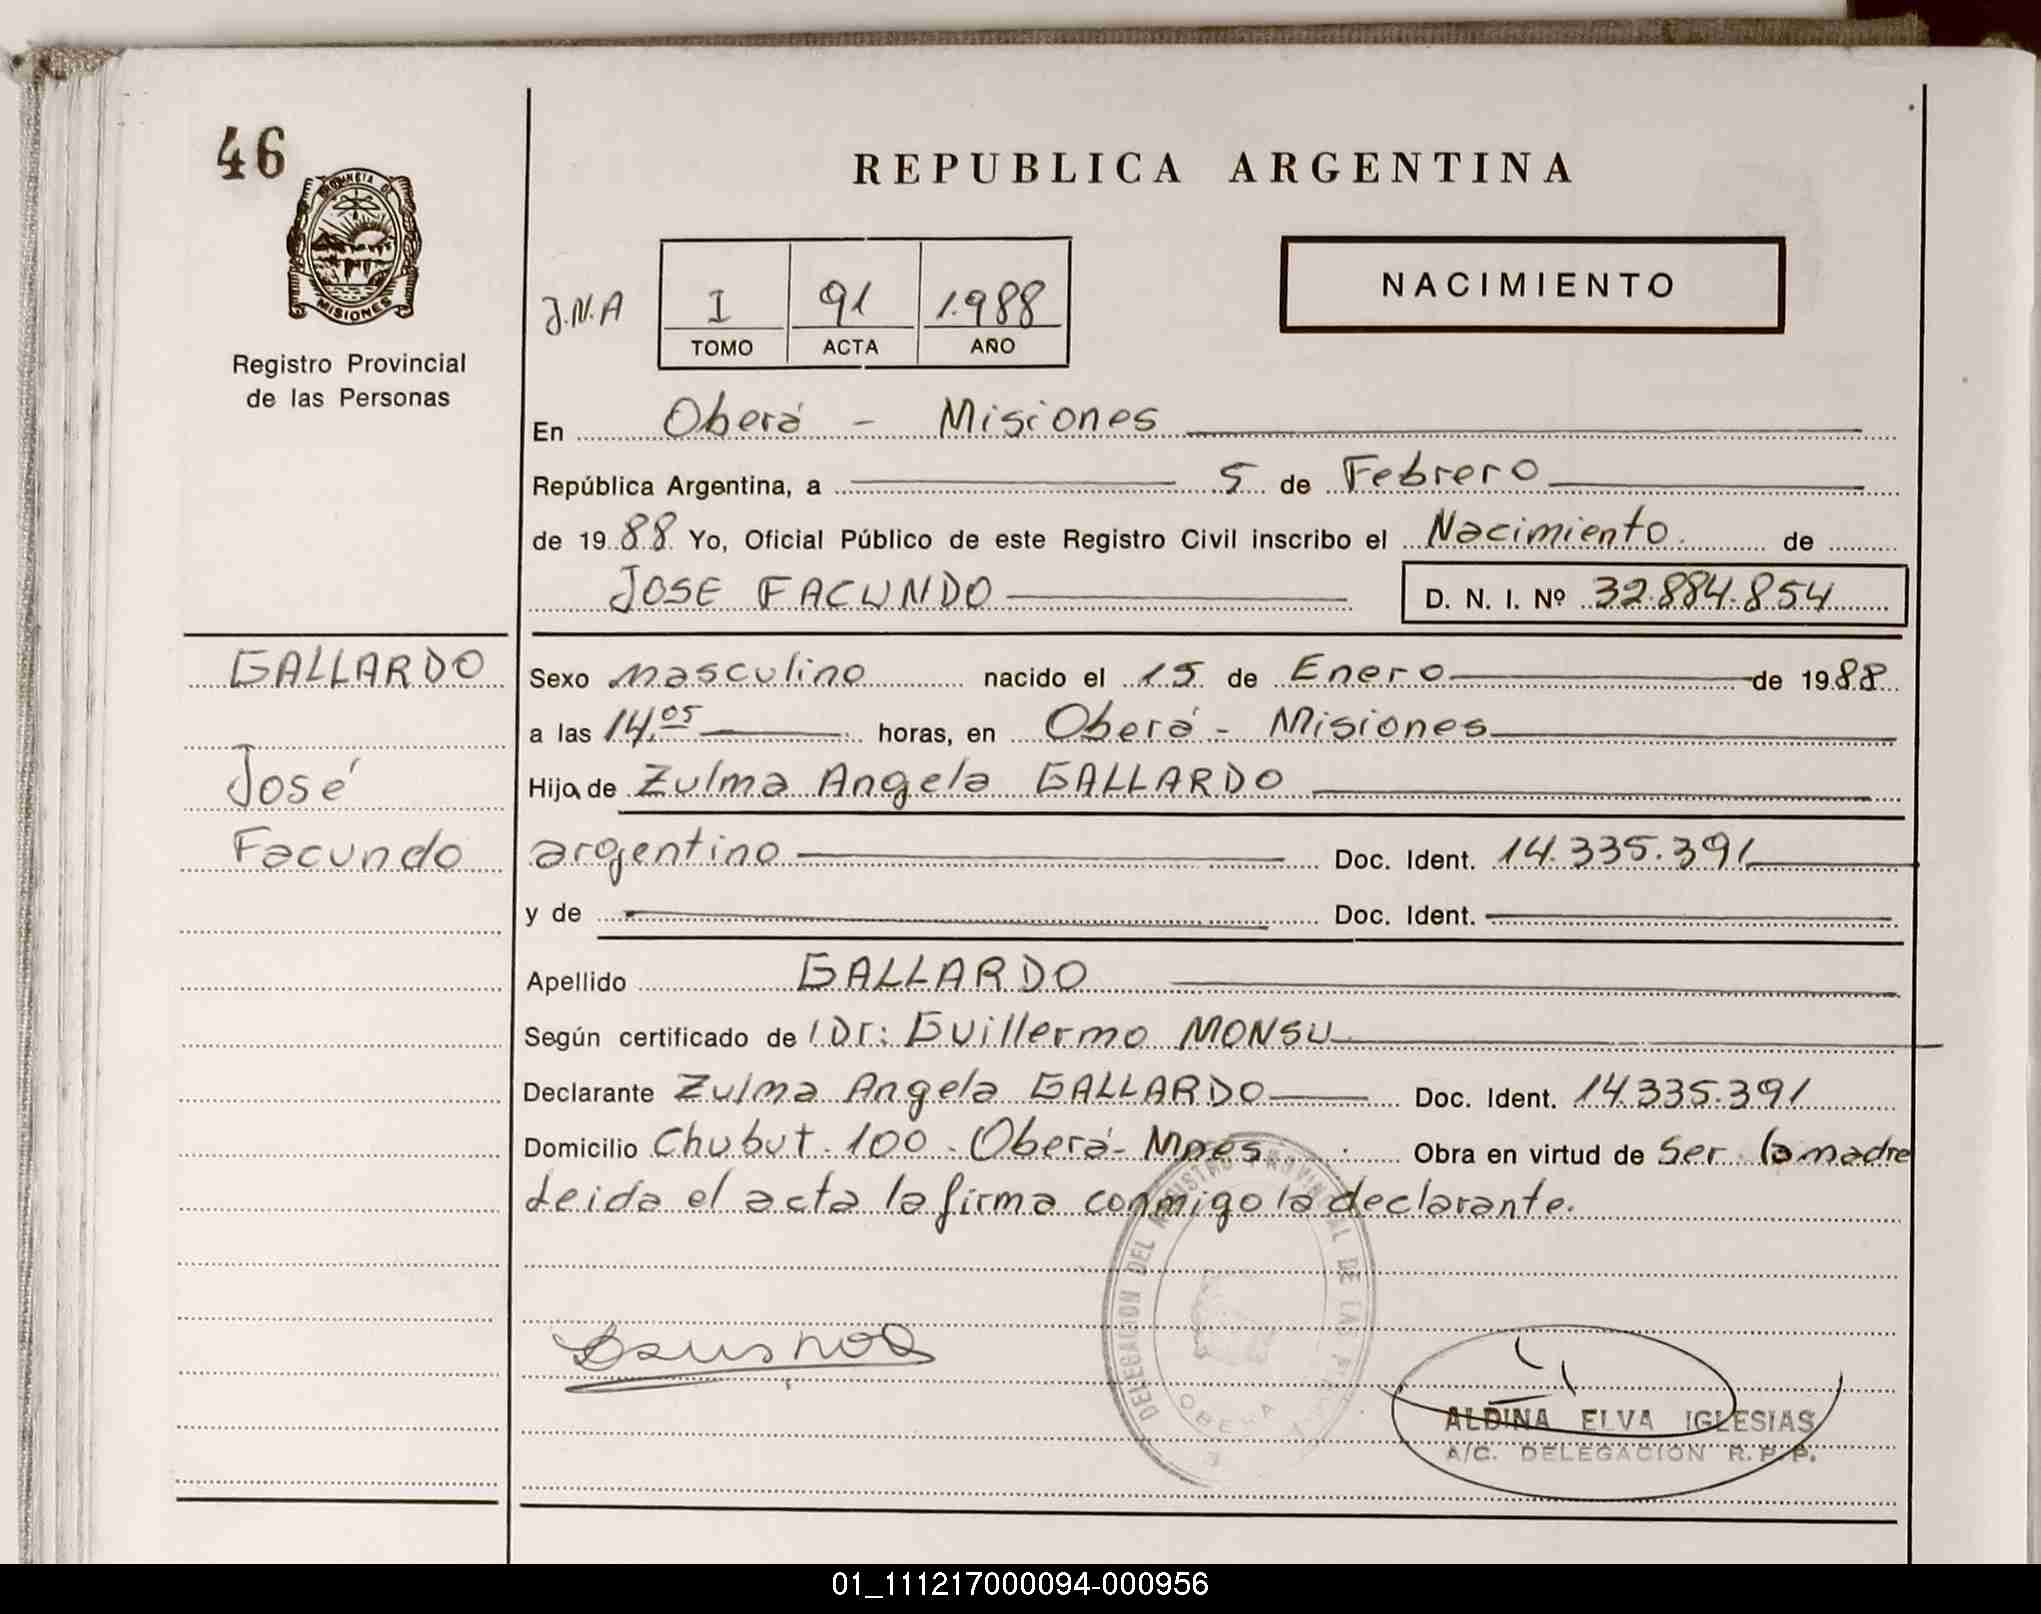 46
PROVINCIA DE
MISIONES
Registro Provincial
de las Personas
REPUBLICA ARGENTINA
J.N.A
I 91 1.988
TOMO ACTA AÑO
NACIMIENTO
En Oberá - Misiones
República Argentina, a 5 de Febrero
de 1988 Yo, Oficial Público de este Registro Civil inscribo el Nacimiento. de
JOSE FACUNDO D. N. I. Nº 32.884.854
GALLARDO
José
Facundo
Sexo masculino nacido el 15 de Enero de 1988
a las 14.05 horas, en Oberá - Misiones
Hijo de Zulma Angela GALLARDO
argentino Doc. Ident. 14.335.391
y de Doc. Ident.
Apellido GALLARDO
Según certificado de Dr: Guillermo MONSU
Declarante Zulma Angela GALLARDO Doc. Ident. 14.335.391
Domicilio Chubut. 100 - Oberá - Mnes Obra en virtud de Ser la madre
Leida el acta la firma conmigo la declarante.
DELEGACION DEL REGISTRO PROVINCIAL DE LAS
OBERA
ALDINA ELVA IGLESIAS
A/C. DELEGACION R. P. P.
01_111217000094-000956